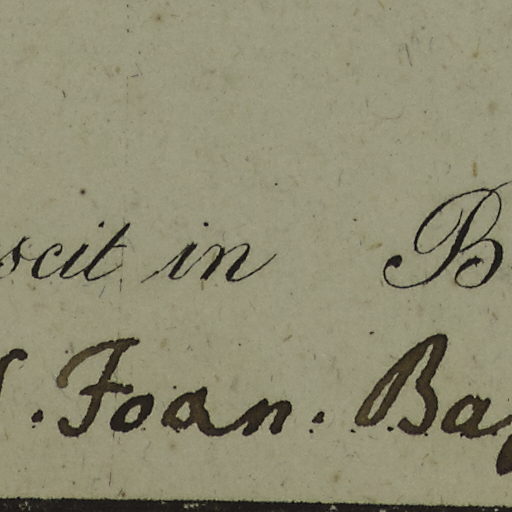 scit in B
. Joan. Ba